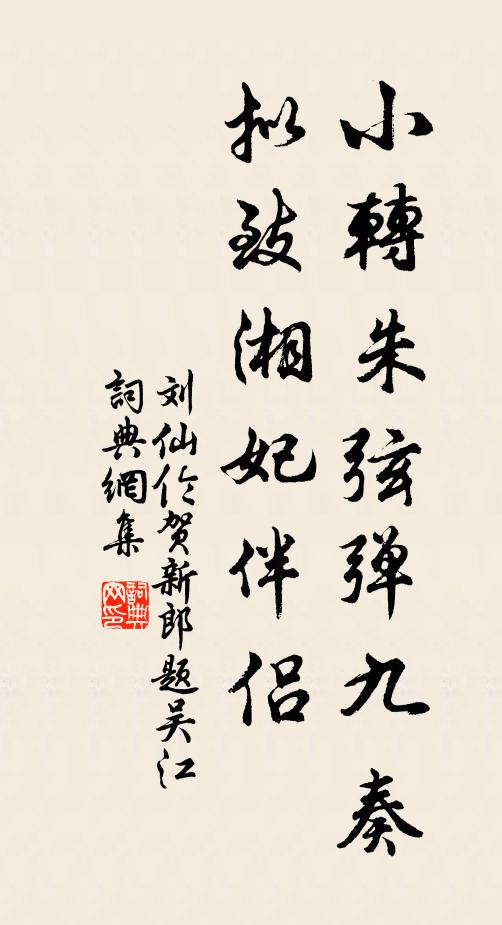 小轉朱弦弹九奏
拟致湘妃伴侣
刘仙伦贺新郎题吴江
詞典網集
詞典
网印